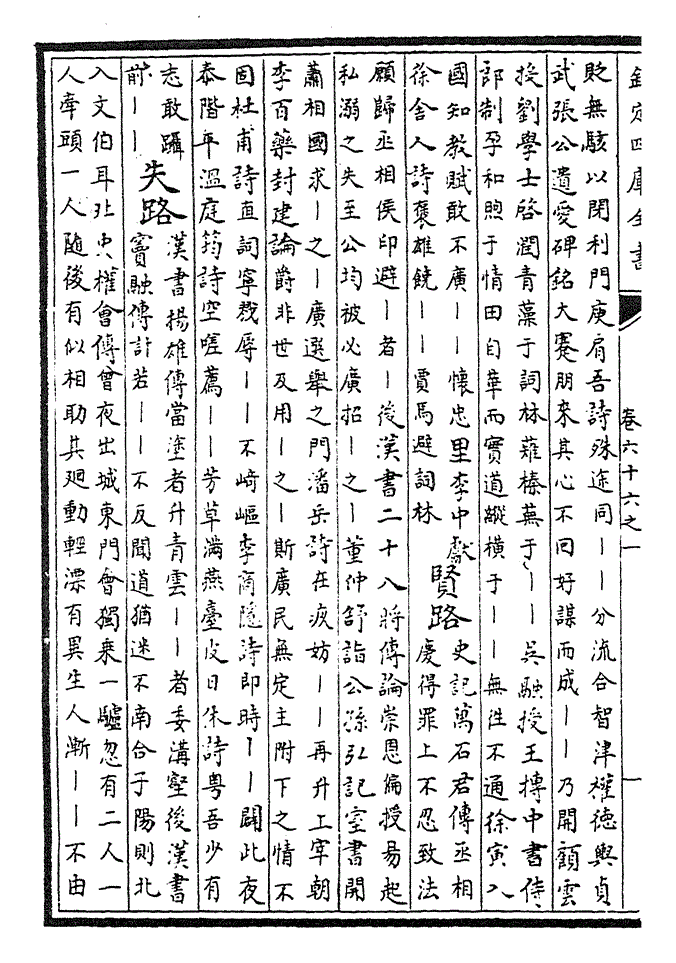 欽定四庫全書
卷六十六之一
一
貶無駭以閉利門庾肩吾詩殊途同｜｜分流合智津權德輿貞
武張公遺愛碑銘大蹇朋來其心不回好謀而成｜｜乃開顧雲
投劉學士啓潤青藻于詞林薙榛蕪于｜｜吳融授王摶中書侍
郎制孕和煦于情田自華而實道縱橫于｜｜無往不通徐寅入
國知教賦敢不廣｜｜懷忠里李中獻
徐舍人詩褒雄饒｜｜賈馬避詞林
賢路
史記萬石君傳丞相
慶得罪上不忍致法
願歸丞相侯印避｜者｜後漢書二十八將傳論崇恩偏授易起
私溺之失至公均被必廣招｜之｜董仲舒詣公孫弘記室書開
蕭相國求｜之｜廣選舉之門潘岳詩在疚妨｜｜再升上宰朝
李百藥封建論爵非世及用｜之｜斯廣民無定主附下之情不
固杜甫詩直詞寧戮辱｜｜不崎嶇李商隱詩即時｜｜闢此夜
泰階平溫庭筠詩空嗟薦｜｜芳草滿燕臺皮日休詩粵吾少有
志敢躡
前｜｜
失路
漢書揚雄傳當塗者升青雲｜｜者委溝壑後漢書
竇融傳計若｜｜不反聞道猶迷不南合子陽則北
入文伯耳北史權會傳曾夜出城東門會獨乘一驢忽有二人一
人牽頭一人隨後有似相助其廻動輕漂有異生人漸｜｜不由